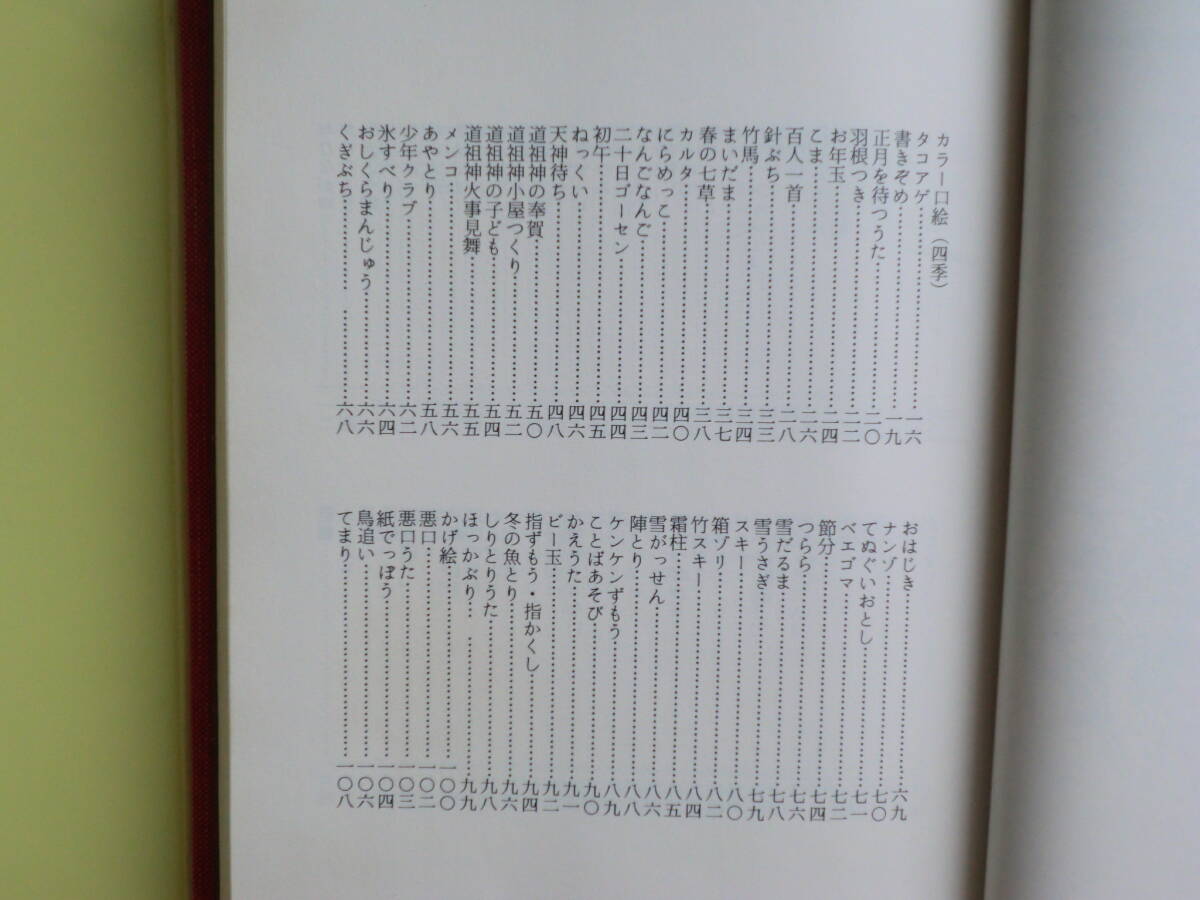 カラー口絵（四季）
タコアゲ……一六
書きぞめ……一九
正月を待つうた……二〇
羽根つき……二二
お年玉……二四
こま……二六
百人一首……二八
針ぶち……三三
竹馬……三四
まいだま……三七
春の七草……三八
カルタ……四〇
にらめっこ……四二
なんごなんご……四三
二十日ゴーセン……四四
初午……四五
ねっくい……四六
天神待ち……四八
道祖神の奉賀……五〇
道祖神小屋つくり……五二
道祖神の子ども……五四
道祖神火事見舞……五五
メンコ……五六
あやとり……五八
少年クラブ……六二
氷すべり……六四
おしくらまんじゅう……六六
くぎぶち……六八
おはじき……六九
ナンゾ……七〇
てぬぐいおとし……七一
ベエゴマ……七二
節分……七四
つらら……七六
雪だるま……七八
雪うさぎ……七九
スキー……八〇
箱ゾリ……八二
竹スキー……八四
霜柱……八五
雪がっせん……八六
陣とり……八八
ケンケンずもう……八九
ことばあそび……九〇
かえうた……九一
ビー玉……九二
指ずもう・指かくし……九四
冬の魚とり……九六
しりとりうた……九八
ほっかぶり……九九
かげ絵……一〇〇
悪口……一〇二
悪口うた……一〇三
紙でっぽう……一〇四
鳥追い……一〇六
てまり……一〇八